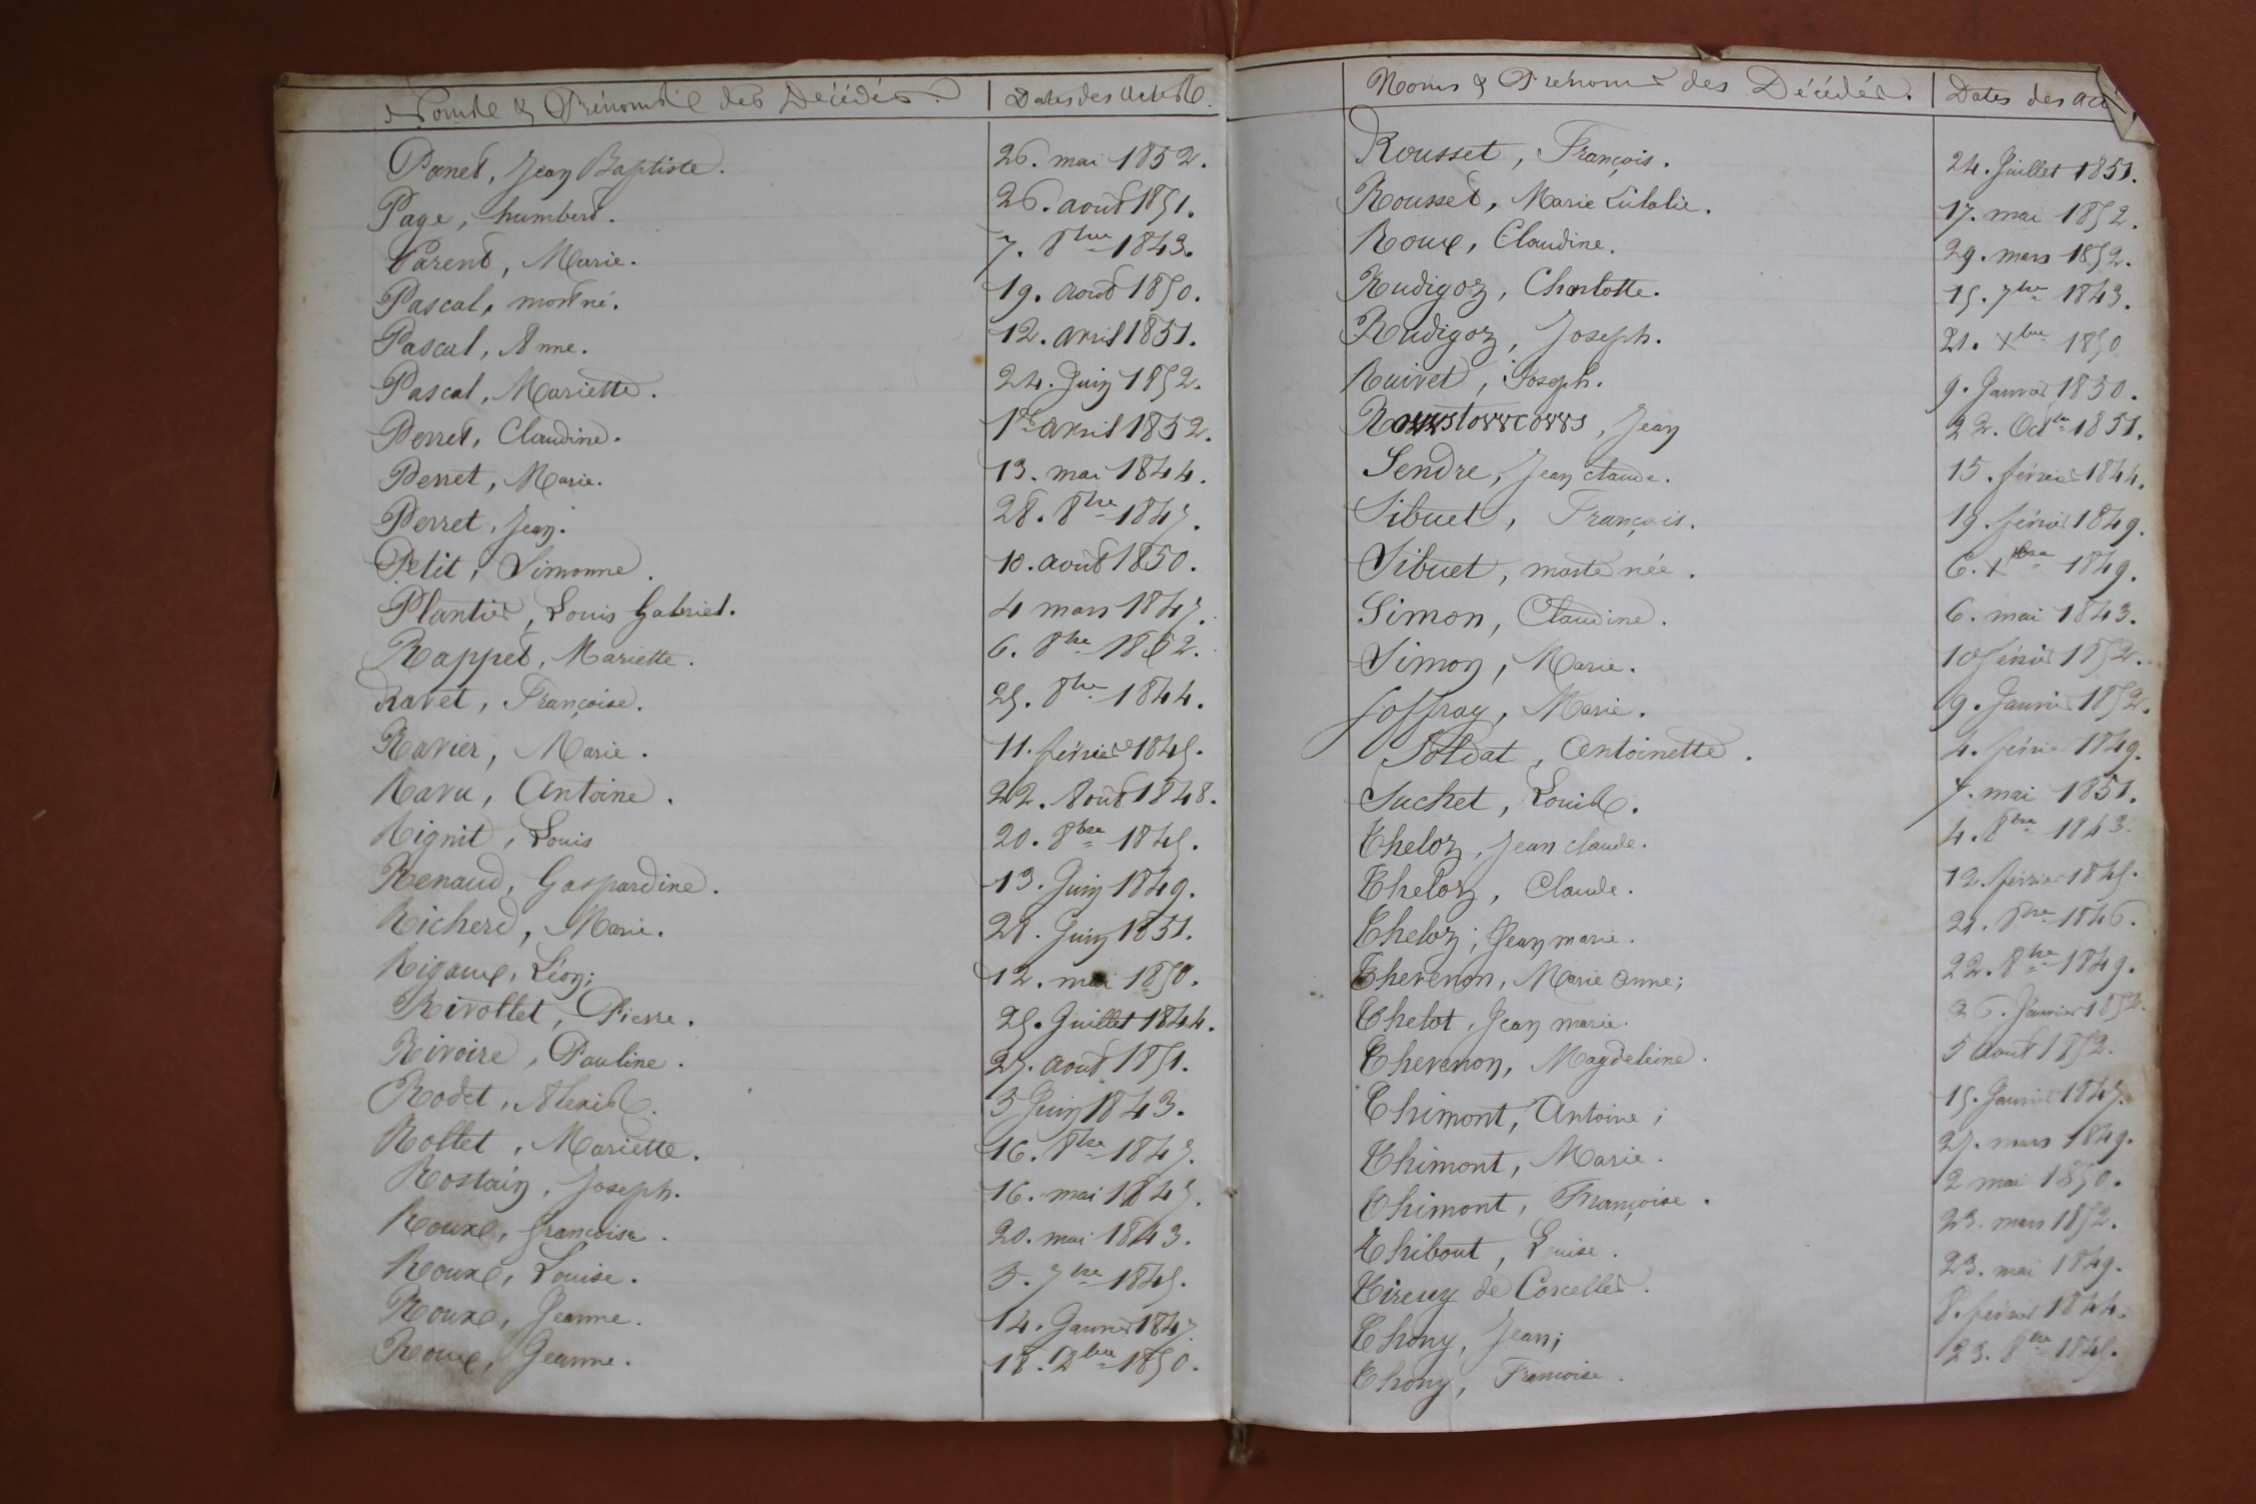 Noms & Prénoms des Décédés. Dates des Actes.
Panet, Jean Baptiste. 26. mai 1852.
Page, humbert. 26. aout 1851.
Parent, Marie. 7. 8bre 1843.
Pascal, mort né. 19. aout 1850.
Pascal, Anne. 12. avril 1851.
Pascal, Mariette. 24. Juin 1852.
Perret, Claudine. 1er avril 1852.
Perret, Marie. 13. mai 1844.
Perret, Jean. 28. 8bre 1847.
Petit, Simonne. 10. aout 1850.
Plantier, Louis Gabriel. 4 mars 1847.
Rappet, Mariette. 6. 8bre 1852.
Ravet, Françoise. 25. 8bre 1844.
Ravier, Marie. 11. février 1845.
Ravu, Antoine. 22. Aout 1848.
Rignit, Louis 20. 8bre 1845.
Renaud, Gaspardine. 13. Juin 1849.
Richerd, Marie. 21. Juin 1851.
Rigaux, Léon; 12. mai 1850.
Rivollet, Pierre. 25. Juillet 1844.
Rivoire, Pauline. 27. aout 1851.
Rodet, Alexis. 3 Juin 1843.
Rollet, Mariette. 16. 8bre 1847.
Rostain, Joseph. 16. mai 1845.
Roux, françoise. 20. mai 1843.
Roux, Louise. 5. 7bre 1845.
Roux, Jeanne. 14. Janvier 1847.
Roux, Jeanne. 18. 8bre 1850.
Noms & Prénoms des Décédés. Dates des Act
Rousset, François. 24. Juillet 1851.
Rousset, Marie Eulalie. 17. mai 1852.
Roux, Claudine. 29. mars 1852.
Rudigoz, Charlotte. 15. 7bre 1843.
Rudigoz, Joseph. 21. Xbre 1850
Ruivet, Joseph. 9. Janvier 1850.
Jean 22. Octbre 1851.
Sendre, Jean claude. 15. février 1844.
Sibuet, François. 19. février 1849.
Sibuet, morte née. 6. Xbre 1849.
Simon, Claudine. 6. mai 1843.
Simon, Marie. 10 février 1852.
Soffray, Marie. 9. Janvier 1852.
Soldat, Antoinette. 4. février 1849.
Suchet, Louis. 7. mai 1851.
Theloz, Jean claude. 4. 8bre 1843.
Theloz, Claude. 12. février 1845.
Theloz; Jean marie. 21. 8bre 1846.
Thevenon, Marie Anne; 22. 8bre 1849.
Thelot, Jean marie. 26. Janvier 1852.
Thevenon, Magdeleine. 5 Aout 1852.
Thimont, Antoine; 15. Janvier 1847.
Thimont, Marie. 27. mars 1849.
Thimont, Françoise. 2 mai 1850.
Thibout, Louise. 23. mars 1852.
Tircuy de Corcelles. 23. mai 1849.
Thony, Jean; 8. février 1844.
Thony, Francoise. 23. 8bre 1845.